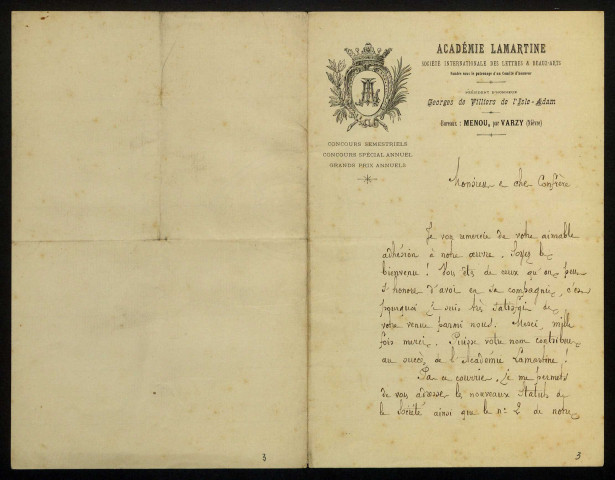 ACADÉMIE LAMARTINE
SOCIÉTÉ INTERNATIONALE DES LETTRES & BEAUX-ARTS
Fondée sous le patronage d'un Comité d'honneur
PRÉSIDENT D'HONNEUR
Georges de Villiers de l'Isle-Adam
Bureaux : MENOU, par VARZY (Nièvre)
CONCOURS SEMESTRIELS
CONCOURS SPÉCIAL ANNUEL
GRANDS PRIX ANNUELS
Monsieur et cher Confrère
Je vous remercie de votre aimable
adhésion à notre œuvre. Soyez le
bienvenu ! Vous êtes de ceux qu'on peut
s'honorer d'avoir en sa compagnie, c'est
pourquoi je suis très satisfait de
votre venue parmi nous. Merci, mille
fois merci. Puisse votre nom contribuer
au succès de l'Académie Lamartine !
Par ce courrier, je me permets
de vous adresser les nouveaux Statuts de
la Société ainsi que le n° 2 de notre
3
3